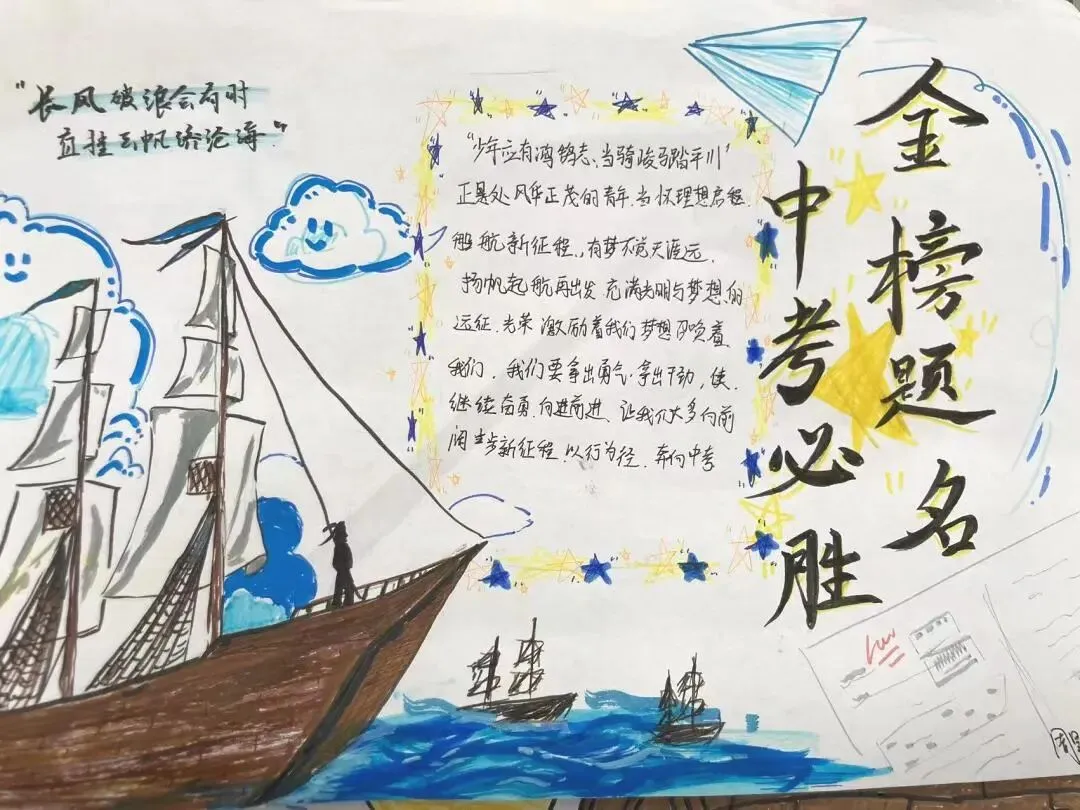 “长风破浪会有时
直挂云帆济沧海”
“少年应有鸿鹄志、当骑骏马踏平川”
正是处风华正茂的青年.当怀理想启程.
航新征程，有梦不觉天涯远.
扬帆起航再出发 充满光明与梦想的
远征.光荣激励着我们梦想召唤着
我们.我们要拿出勇气.拿出干劲，使.
继续奋勇.向进前进、让我们大多向前
阔步新征程.以行为径.奔向中考
金榜题名
中考必胜